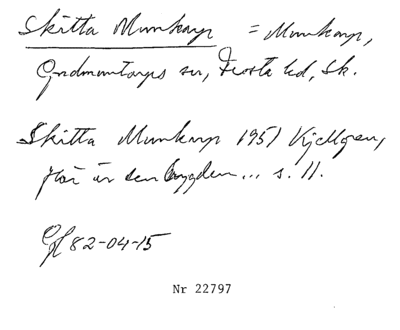 Skitta Munkarp = Munkarp,
Gudmuntorps sn, Frosta hd, Sk.
Skitta Munkarp 1951 Kjellgren,
Här är den bygden... s. 11.
82-04-15
Nr 22797